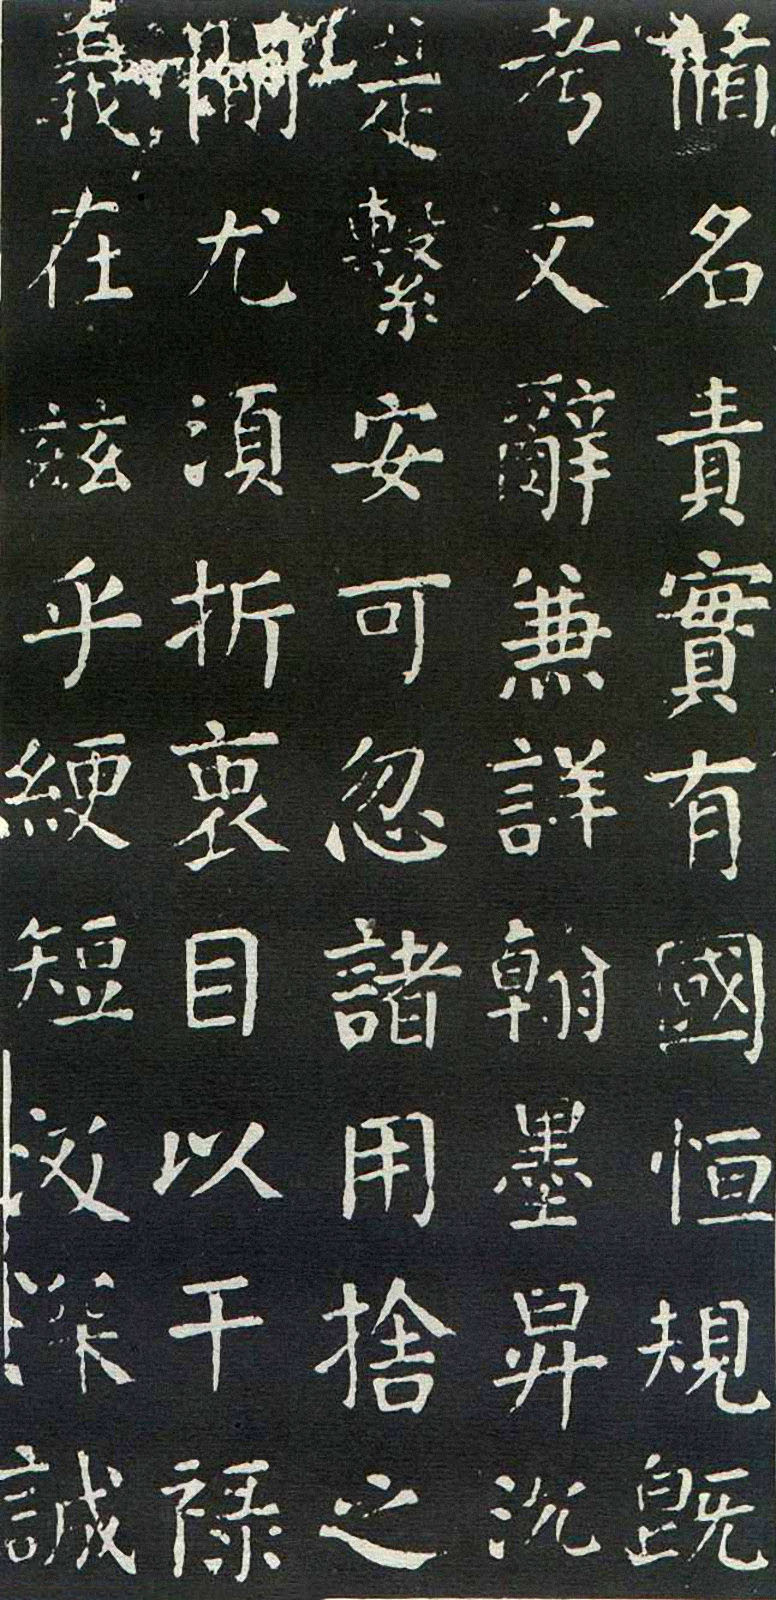 循名責實有國恒規既
考文辭兼詳翰墨昇沉
是繫安可忽諸用捨之
間尤湏折衷目以干禄
義在兹乎綆短汲深誠